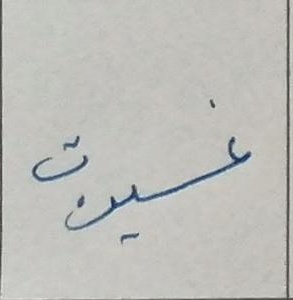 غسيرت